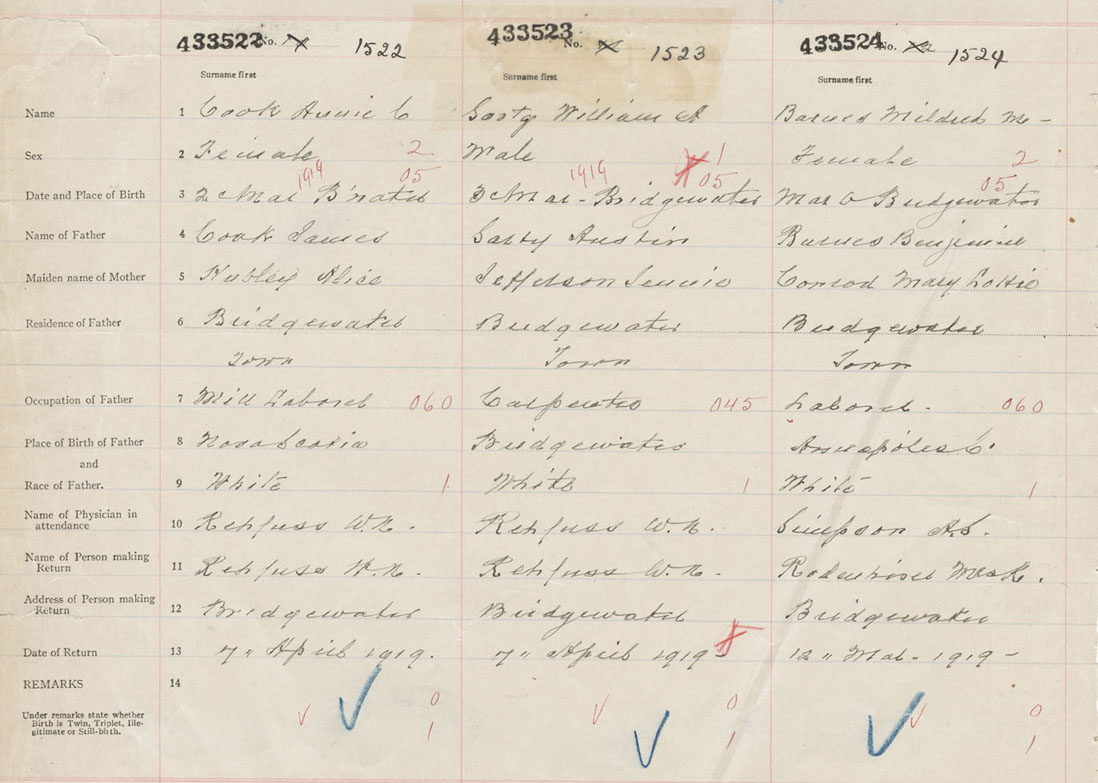 433522 No. 1522 433523 No. 1523 433524 No. 1524
Surname first Surname first Surname first
Name 1 Cook Annie C William A Barnes Mildred M -
Sex 2 Female 2 Male 1 Female 2
1919 05 1919 05 05
Date and Place of Birth 3 2" Mar B'water 3" Mar - Bridgewater Mar 6 Bridgewater
Name of Father 4 Cook James Austin Barnes Benjamine
Maiden name of Mother 5 Hubley Alice Jefferson Jennie Conrod Mary Lottie
Residence of Father 6 Bridgewater Bridgewater Bridgewater
Town Town Town
Occupation of Father 7 Mill Laborer 060 Carpenter 045 Laborer. 060
Place of Birth of Father 8 Nova Scotia Bridgewater Annapolis C.
and
Race of Father. 9 White 1 White 1 White 1
Name of Physician in
attendance 10 Rehfuss W.N. Rehfuss W.N. Simpson A.S.
Name of Person making
Return 11 Rehfuss W.N. Rehfuss W.N. Rodenhiser
Address of Person making
Return 12 Bridgewater Bridgewater Bridgewater
Date of Return 13 7" April 1919. 7" April 1919- 12" Mar - 1919 -
REMARKS 14
Under remarks state whether
Birth is Twin, Triplet, Ille-
gitimate or Still-birth.
0 0 0
1 1 1